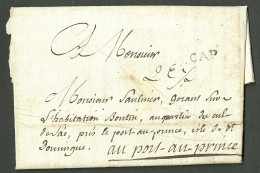 A Monsieur
CAP
Monsieur Saulnier, gerant sur
l'habitation Boutin, au quartier du cul
de Sac, près le port-au-prince, isle de St
Domingue.
au port-au-prince